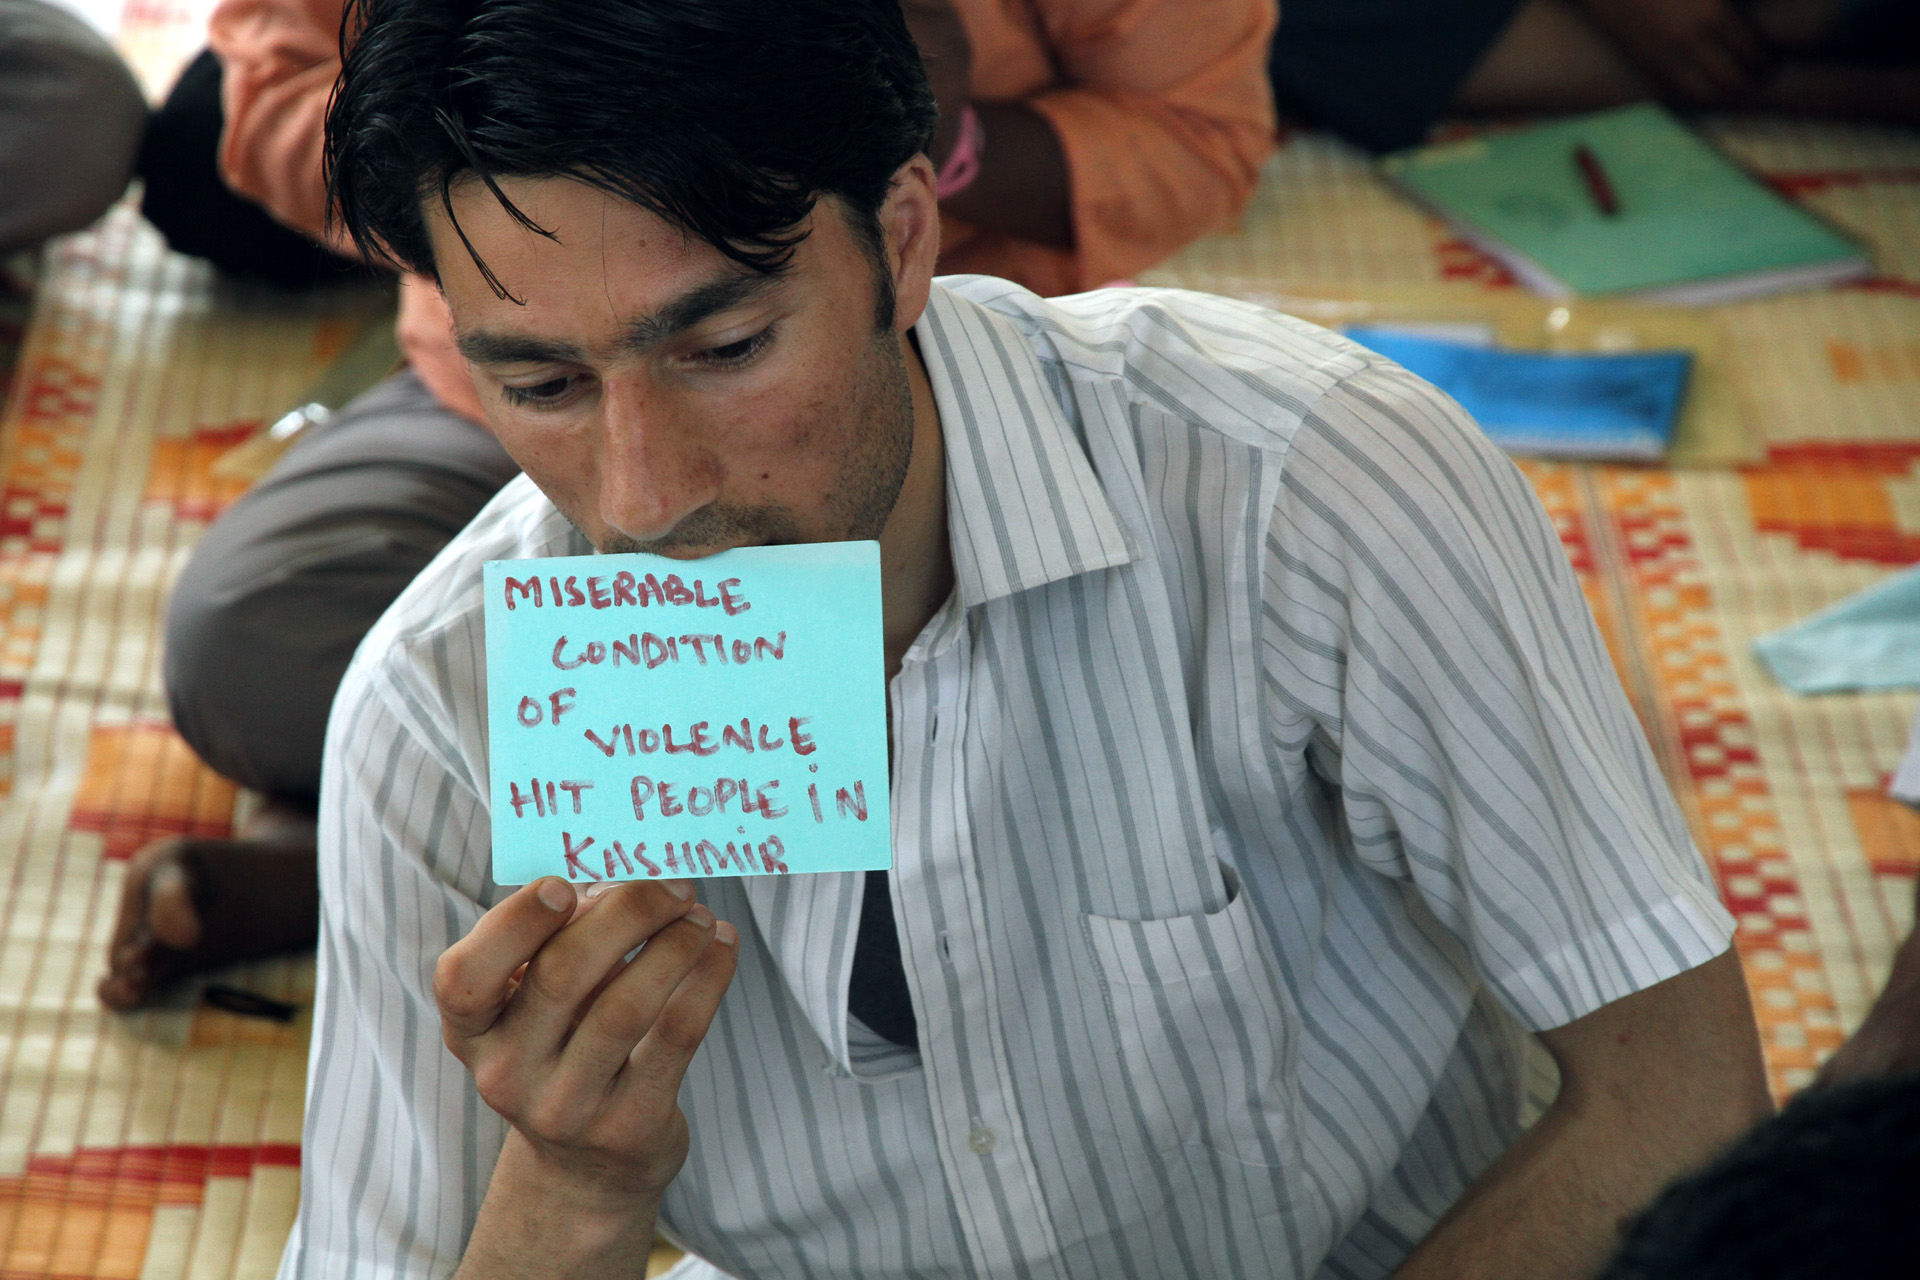 MISERABLE
CONDITION
OF
VIOLENCE
HIT PEOPLE iN
KASHMiR